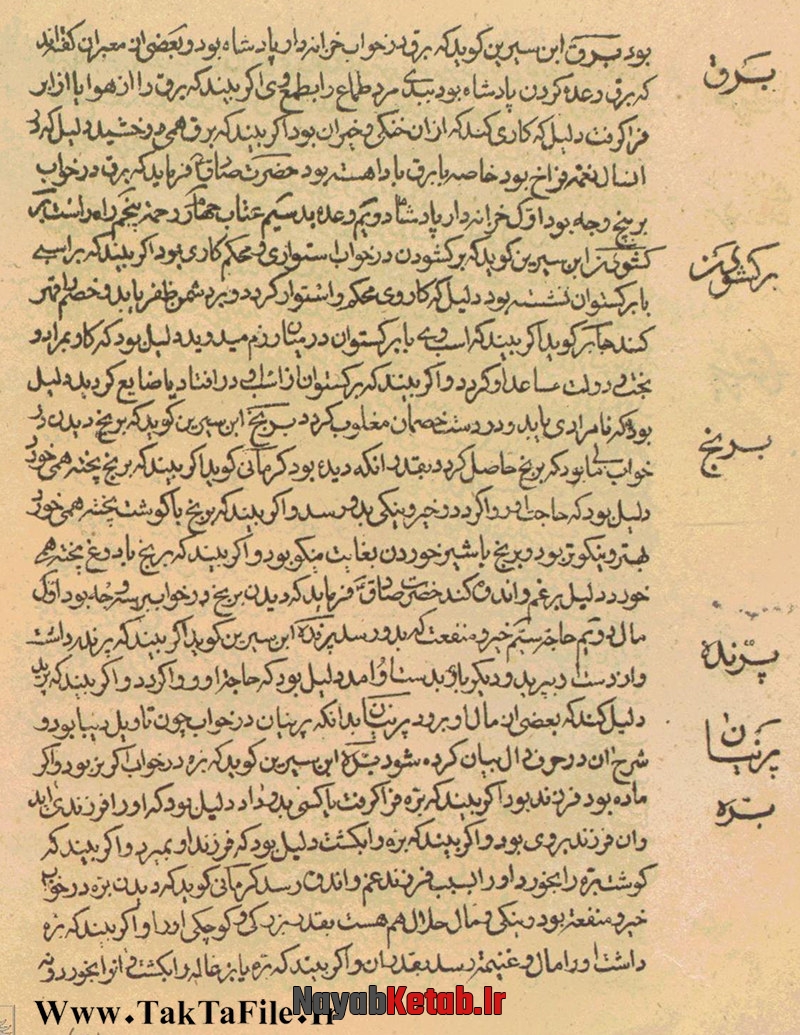 بود برق ابن سیرین کوید که برق در خواب خزانه دار پادشاه بود و بعضی از معبران کفته اند
برق
که برق وعده کردن پادشاه بود مرد طماع را بطمع اکر بیند که برق را از هوا یا از ابر
فرا کرفت دلیل که کاری کند که از ان خیران بود اکر بیند که برق همی درخشید دلیل که در
ان سال نعمة فراخ بود خاصه با برق باد اهسته بود حضرت صادق فرماید که برق در خواب
بر پنج وجه بود اول خزانه دار پادشاه دویم وعده بد سیم عتاب چهارم رحمة پنجم راه راست
ابن سیرین کوید که برکشودن در خواب استواری و محکم کاری بود اکر بیند که بر اسبی
با برکستوان نشسته بود دلیل که کار وی محکم و استوار کردد و بر دشمن ظفر یابد و خصم را قهر
کند جابر کوید اکر بیند که اسب وی با برکستوان در میان رزم میدوید دلیل بود که کار بمراد و
بخت و دولت مساعد او کردد و اکر بیند که برکستوان از اسب وی در افتاد یا ضایع کردید دلیل
بود که نامرادی یابد و در دست خصمان مغلوب کردد برنج ابن سیرین کوید که برنج دیدن در
برنج
خواب مالی بود که برنج حاصل کردد بقدر انکه دیده بود کرمانی کوید اکر بیند که برنج پخته همی خورد
دلیل بود که حاجت او روا کردد و خیر و نیکی بدو رسد و اکر بیند که برنج با کوشت پخته همی خورد
بهتر و نیکوتر بود و برنج با شیر خوردن بغایت نیکو بود و اکر بیند که برنج با دوغ پخته همی
خورد دلیل بر غم و اندوه کند حضرت صادق فرماید که دیدن برنج در خواب بر سه وجه بود اول
مال دویم حاجة سیم خیر و منفعت که بدو رسد پرنده ابن سیرین کوید اکر بیند که پرنده داشت
پرنده
و از دست او بپرید و دیکر باز بدست او امد دلیل بود که حاجة او روا کردد و اکر بیند که پرید
دلیل کند که بعضی از مال او برود پرنیان بدانکه پرنیان در خواب چون تاویل دیبا بود و
پرنیان
شرح ان در حرف دال بیان کرده شود بره ابن سیرین کوید که بره در خواب اکر نر بود و اکر
ماده بود فرزند بود اکر بیند که بره فرا کرفت یا کسی بدو داد دلیل بود که او را فرزندی اید
بره
و ان فرزند بروی بود و اکر بیند که بره را بکشت دلیل بود که فرزند او بمیرد و اکر بیند که
کوشت بره را بخورد او را بسبب فرزند غم و اندوه رسد کرمانی کوید که دیدن بره در خواب
خیر و منفعة بود و نیکی و مال حلال هم هست بقدر بزرکی و کوچکی او و اکر بیند که بره
داشت او را مال و غنیمة رسد بقدر ان و اکر بیند که بره یا بزغاله را بکشت
Www.TakTaFile.Ir
NayabKetab.Ir